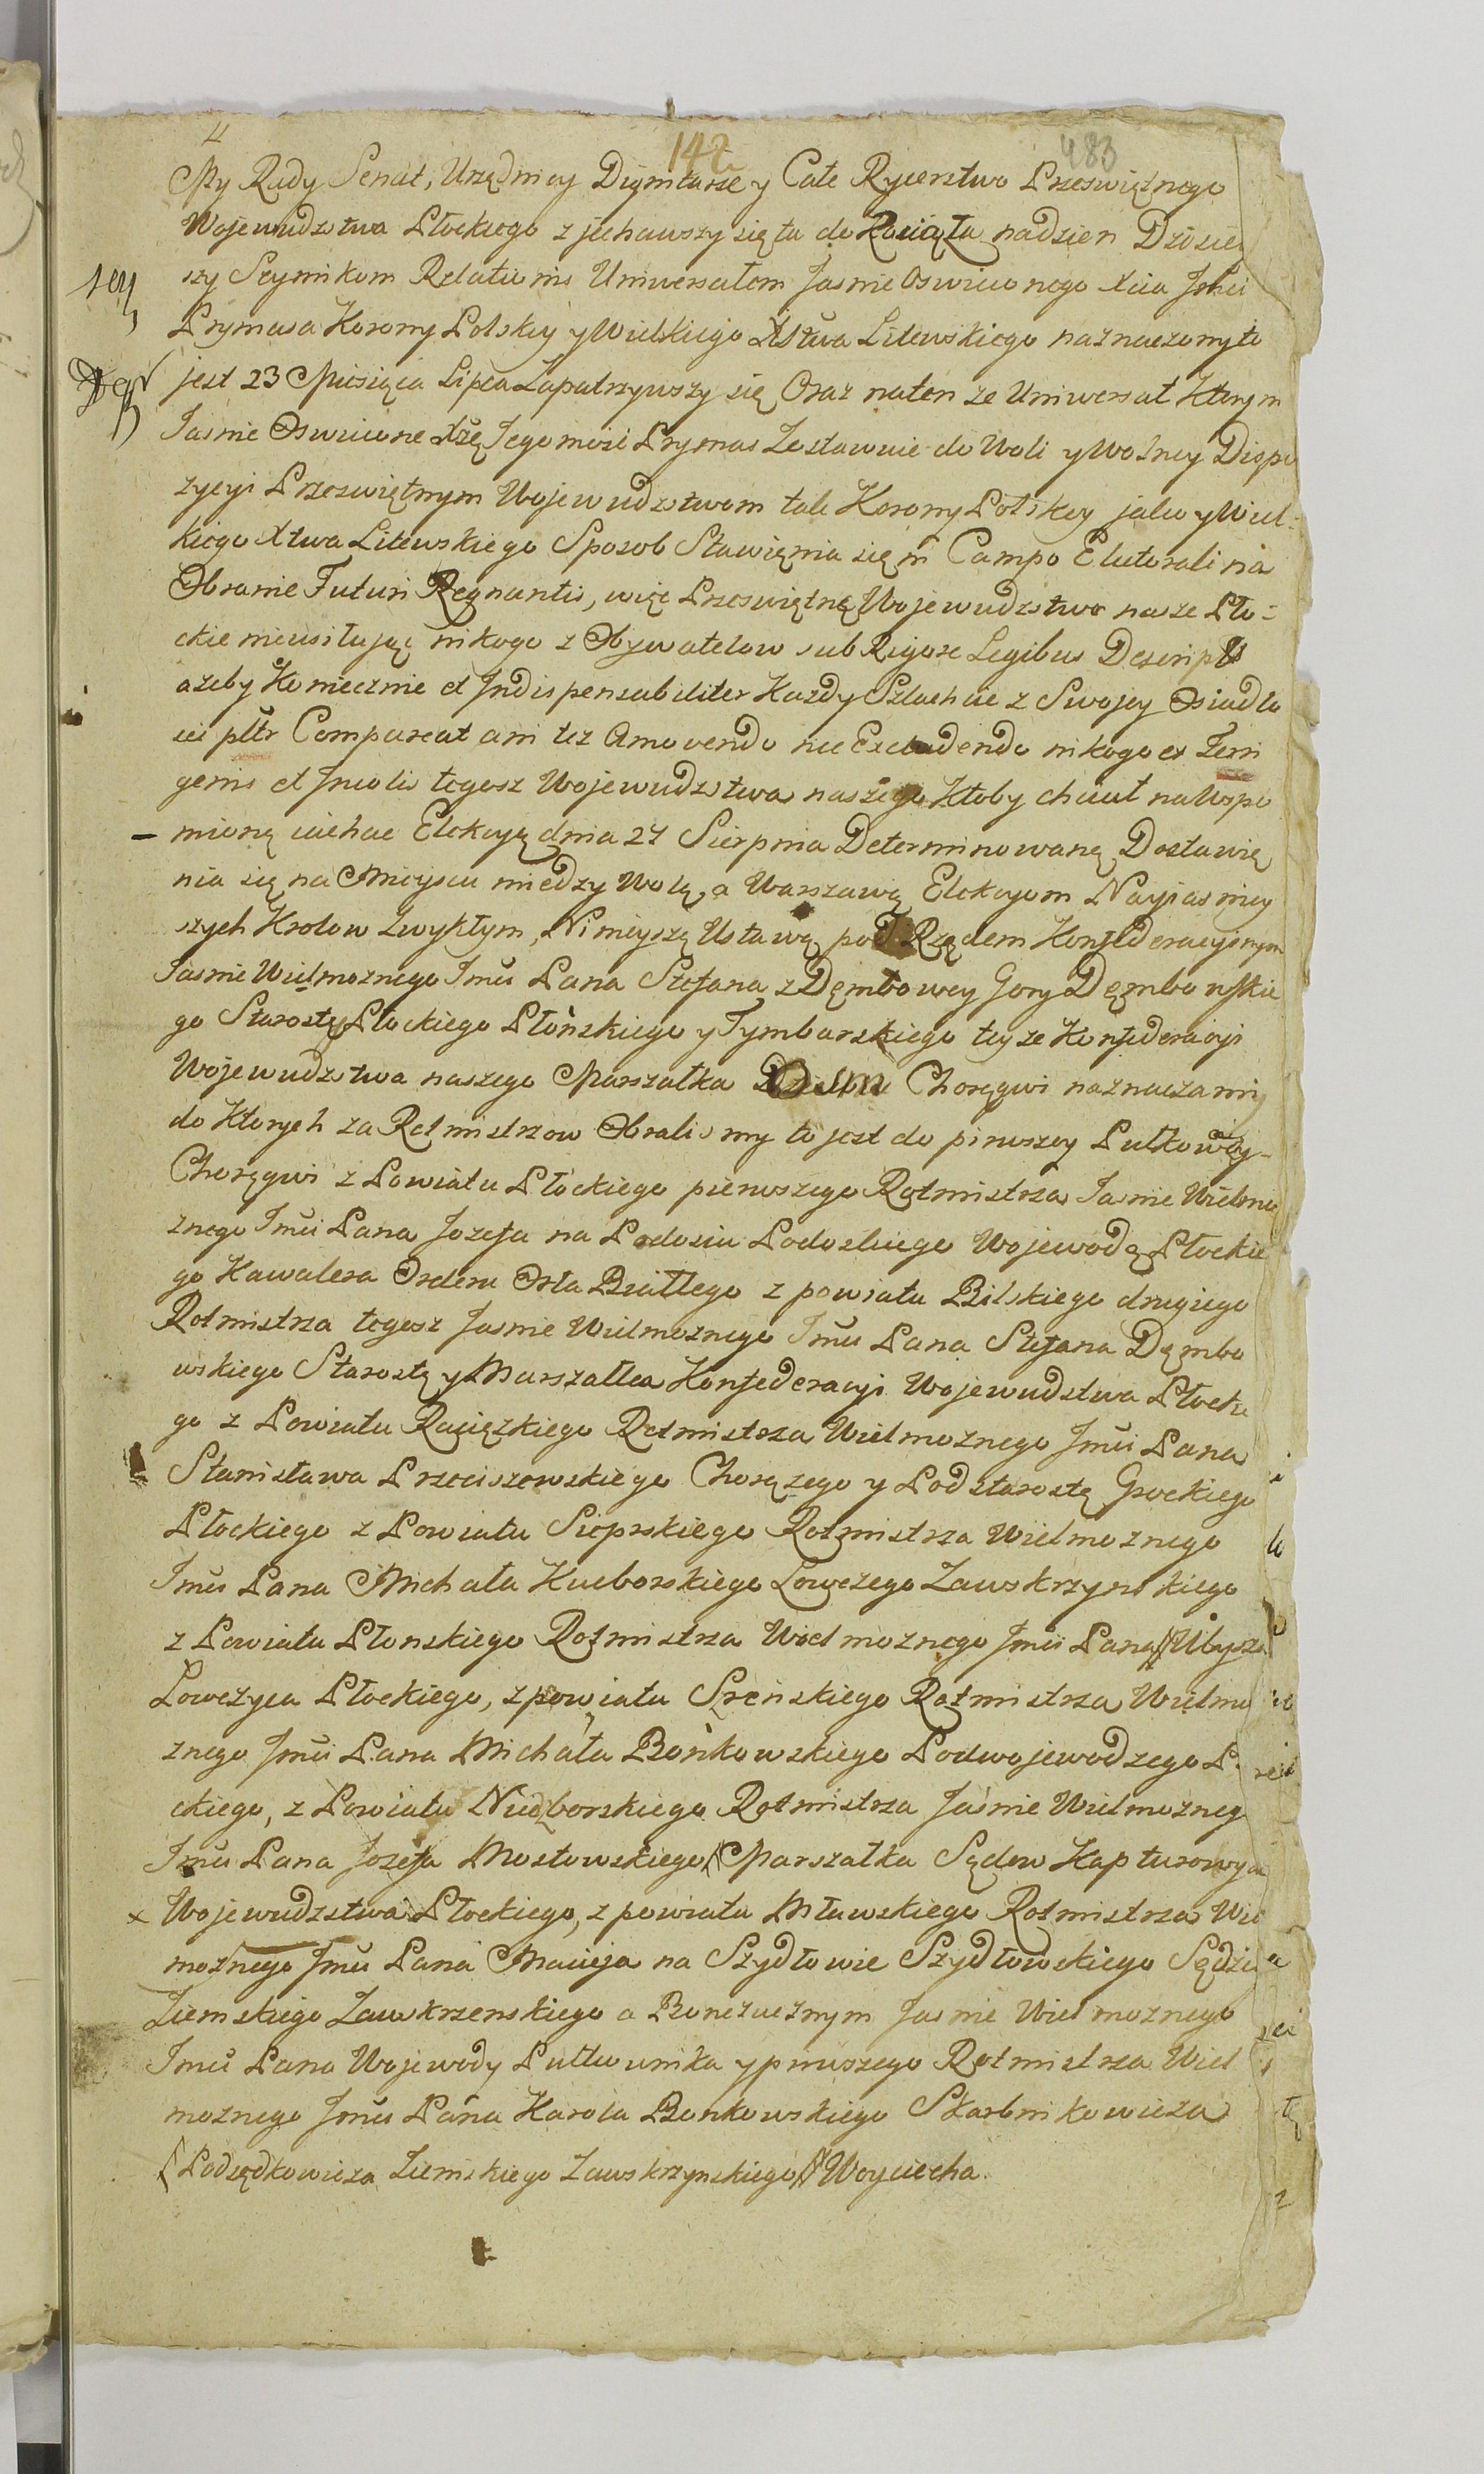 4 142 483
My Rady Senat, Urzędnicy Dignitarze y Całe Rycerstwo Przeświętnego
Wojewudztwa Płockiego zjechawszy się tu do Raciąża nadzien Dzisiey
szy Seymikom Relationis Uniwersałem Jasnie Oswieconego Xcia Jmci
Prymasa Korony Polskiey y Wielkiego Xstwa Litewskiego naznaczony to
jest 23 Miesiąca Lipca Zapatrzywszy się Oraz naten ze Uniwersał Ktorym
Jasnie Oswiecone Xżę Jegomość Prymas Zostawuie do Woli y Wolney Dispo
zycyi Przeświętnym Wojewudztwom tak Korony Polskey jako y Wiel:
kiego Xtwa Litewskiego Sposob Stawięnia się in Campo Electorali na
Obranie Futuri Regnantis, więc Przeświętnę Wojewudztwo nasze Pło:
ckie nieusiłując nikogo z Obywatelow sub Rigore Legibus Descripto
azeby Koniecznie et Indispensabiliter Kazdy Szlachcic z Swojey Osiadło
sci pltr Compareat ani tez Amovendo nec Excludendo nikogo ex Terri
genis et Incolis tegosz Wojewudztwa naszego Ktoby chciał na Wspo
mioną iechac Elekcyą dnia 27 Sierpnia Determinowaną Dostawię
nia się na Mieyscu miedzy Wolą, a Warszawą Elekcyom Nayiasniey
szych Krolow Zwykłym, Ninieyszą Ustawą pod Rządem Konfederacyinym
Jasnie Wielmoznego Jmci Pana Stefana z Dęmbowey Gory Dęmbowskie
go Starosty Płockiego Płońskiego y Tymbarskiego teyze Konfederacyi
Wojewudztwa naszego Marszałka Osm Chorągwi naznaczamy
do Ktorych za Rotmistrzow Obralismy to jest do pirwszey Pułkowey
Chorągwi z Powiatu Płockiego pierwszego Rotmistrza Jasnie Wielmo
znego Jmci Pana Jozefa na Podosiu Podoskiego Wojewodę Płockie
go Kawalera Orderu Orła Białłego z powiatu Bilskiego drugiego
Rotmistrza tegosz Jasnie Wielmoznego Jmci Pana Stefana Dęmbo
wskiego Starostę y Marszałka Konfederacyi Wojewudstwa Płockie
go z Powiatu Raciązkiego Rotmistrza Wielmoznego Jmci Pana
Stanisława Przeciszewskiego Chorązego y Podstarostę Grockiego
Płockiego z Powiatu Sieprskiego Rotmistrza Wielmoznego
Jmci Pana Michała Kucborskiego Łowczego Zawskrzynskiego
z Powiatu Płonskiego Rotmistrza Wielmoznego Jmci Pana
Łowczyca Płockiego, z powiatu Szreńskiego Rotmistrza Wielmo
znego Jmci Pana Michała Bońkowskiego Podwojewodzego P
ckiego, z Powiatu Niedzborskiego Rotmistrza Jaśnie Wielmozneg
Jmci Pana Jozefa Mostowskiego Marszałka Sędow Kapturowych
x Wojewudzstwa Płockiego, z powiatu Mławskiego Rotmistrza Wiel
moznego Jmci Pana Macieja na Szydłowie Szydłowskiego Sędzie
Ziemskiego Zawkrzenskiego a Porucznym Jasnie Wielmoznego
Jmci Pana Wojewody Pułkownika y pirwszego Rotmistrza Wiel
moznego Jmci Pana Karola Bonkowskiego Skarbnikowicza
Podsędkowicza Ziemskiego Zawskrzynskiego Woyciecha